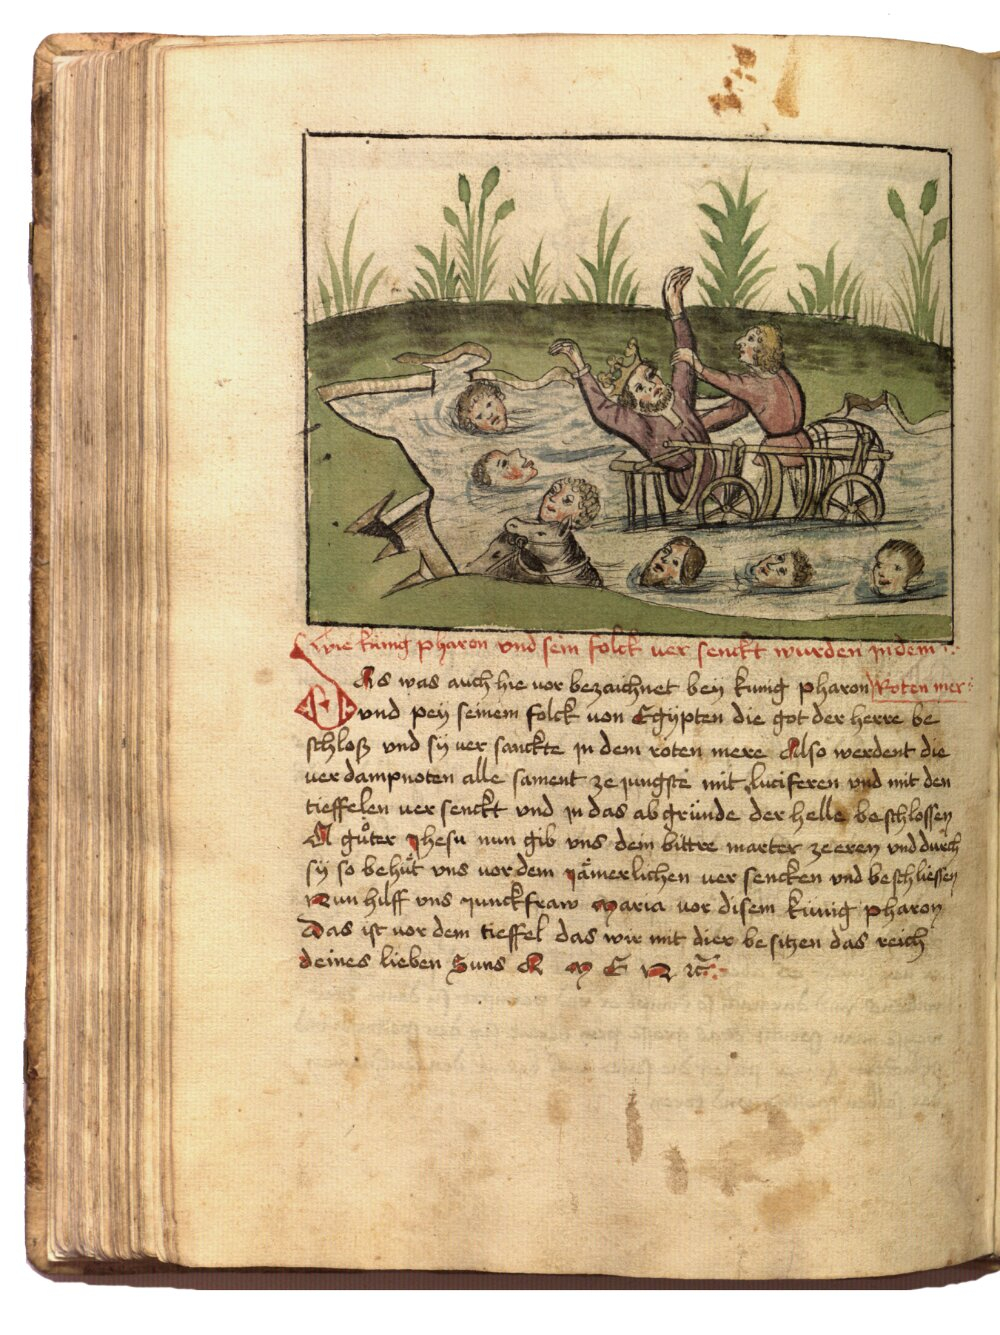 Wie küng pharon vnd sein folck ver senckt wurden jn dem
Roten mer
Das was auch hie vor bezaichnet beÿ kunig pharon
vnd peÿ seinem folck von Egÿpten die got der herre be
schloß vnd sÿ ver sanckte jn dem roten mere Also werdent die
ver dampnoten alle sament ze jungste mit luciferen vnd mit den
tieffelen uer senckt vnd jn das ab gründe der helle beschlossen
A guͦter Jhesu nun gib vns dein bittre marter zeeren vnd durch
sÿ so behuͤt vns vor dem jämerlichen ver sencken vnd beschliessen
Nun hilff vns junckfraw Maria vor disem künig pharon
Das ist vor dem tieffel das wir mit dier besitzen das reich
deines lieben Suns A M E N